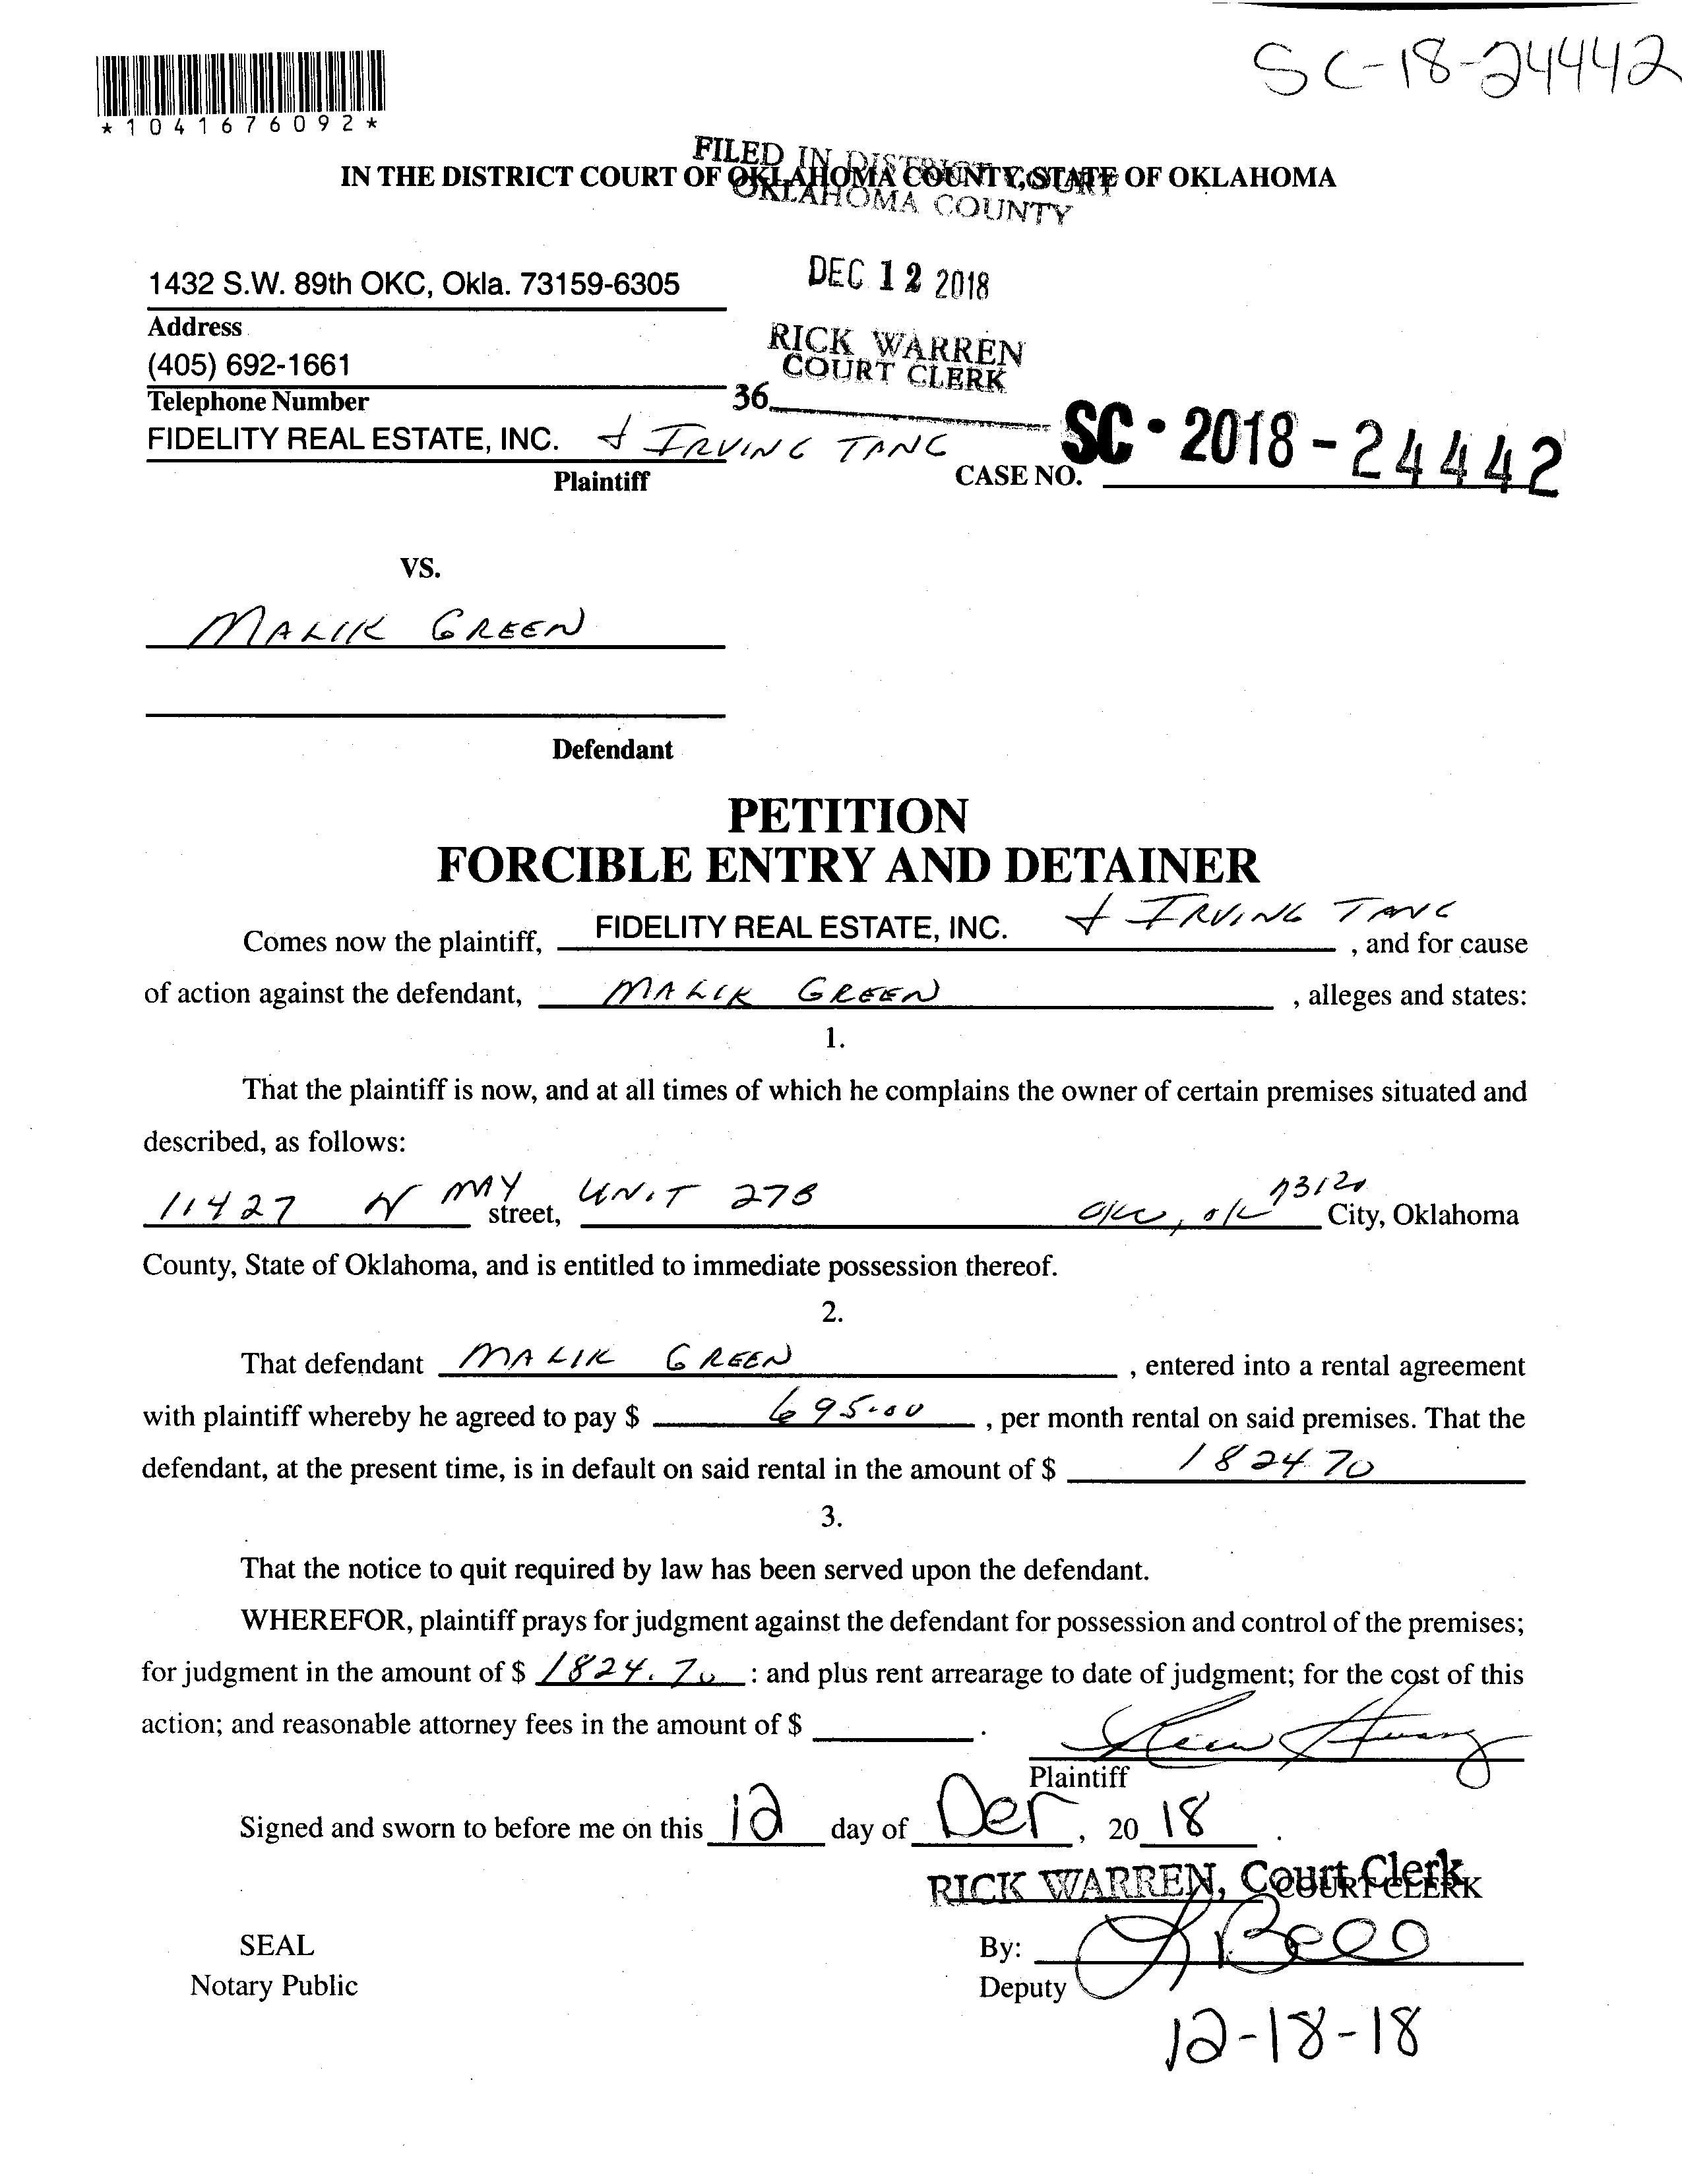 SC-18-24442
*1041676092*
FILED IN DISTRICT COURT
IN THE DISTRICT COURT OF OKLAHOMA COUNTY, STATE OF OKLAHOMA
OKLAHOMA COUNTY
1432 S.W. 89th OKC, Okla. 73159-6305
DEC 12 2018
Address
RICK WARREN
(405) 692-1661
COURT CLERK
Telephone Number
36
FIDELITY REAL ESTATE, INC. & IRVING TANG
Plaintiff
CASE NO. SC-2018-24442
VS.
MALIK GREEN
Defendant
PETITION
FORCIBLE ENTRY AND DETAINER
Comes now the plaintiff, FIDELITY REAL ESTATE, INC. & IRVING TANG, and for cause
of action against the defendant, MALIK GREEN, alleges and states:
1.
That the plaintiff is now, and at all times of which he complains the owner of certain premises situated and
described, as follows:
11427 N MAY street, UNIT OKC, OK 73120 City, Oklahoma
County, State of Oklahoma, and is entitled to immediate possession thereof.
2.
That defendant MALIK GREEN, entered into a rental agreement
with plaintiff whereby he agreed to pay $ 695.00, per month rental on said premises. That the
defendant, at the present time, is in default on said rental in the amount of $ 1824.70
3.
That the notice to quit required by law has been served upon the defendant.
WHEREFOR, plaintiff prays for judgment against the defendant for possession and control of the premises;
for judgment in the amount of $ 1824.70: and plus rent arrearage to date of judgment; for the cost of this
action; and reasonable attorney fees in the amount of $ .
Plaintiff
Signed and sworn to before me on this 12 day of Dec, 2018.
RICK WARREN, Court Clerk
COURT CLERK
SEAL
By:
Notary Public
Deputy
12-18-18